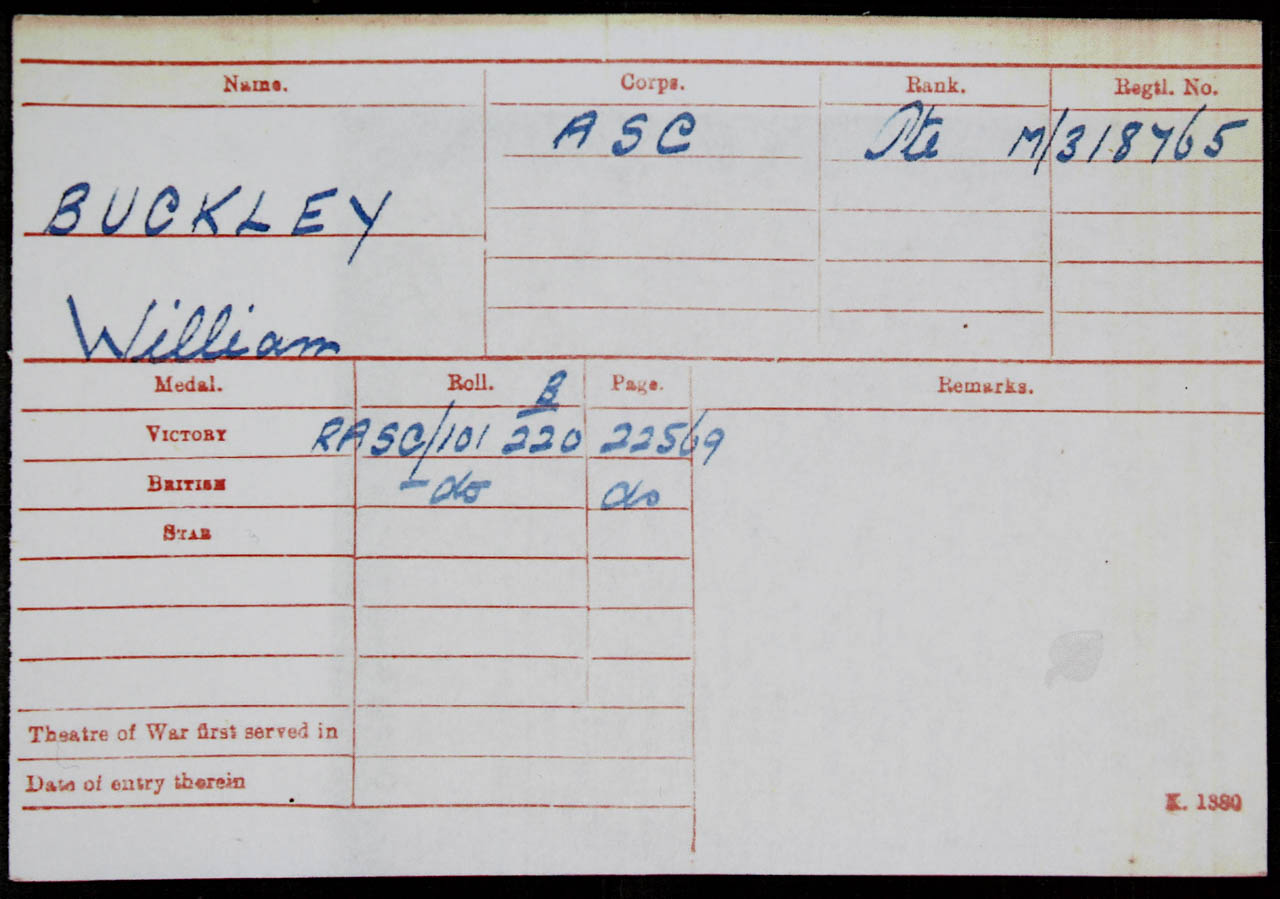 Name. Corps. Rank. Regtl. No.
ASC Pte M/318765
BUCKLEY
William
Medal. Roll. Page. Remarks.
B
VICTORY RASC/101 220 22569
BRITISH -do do
STAR
Theatre of War first served in
Date of entry therein
K. 1380